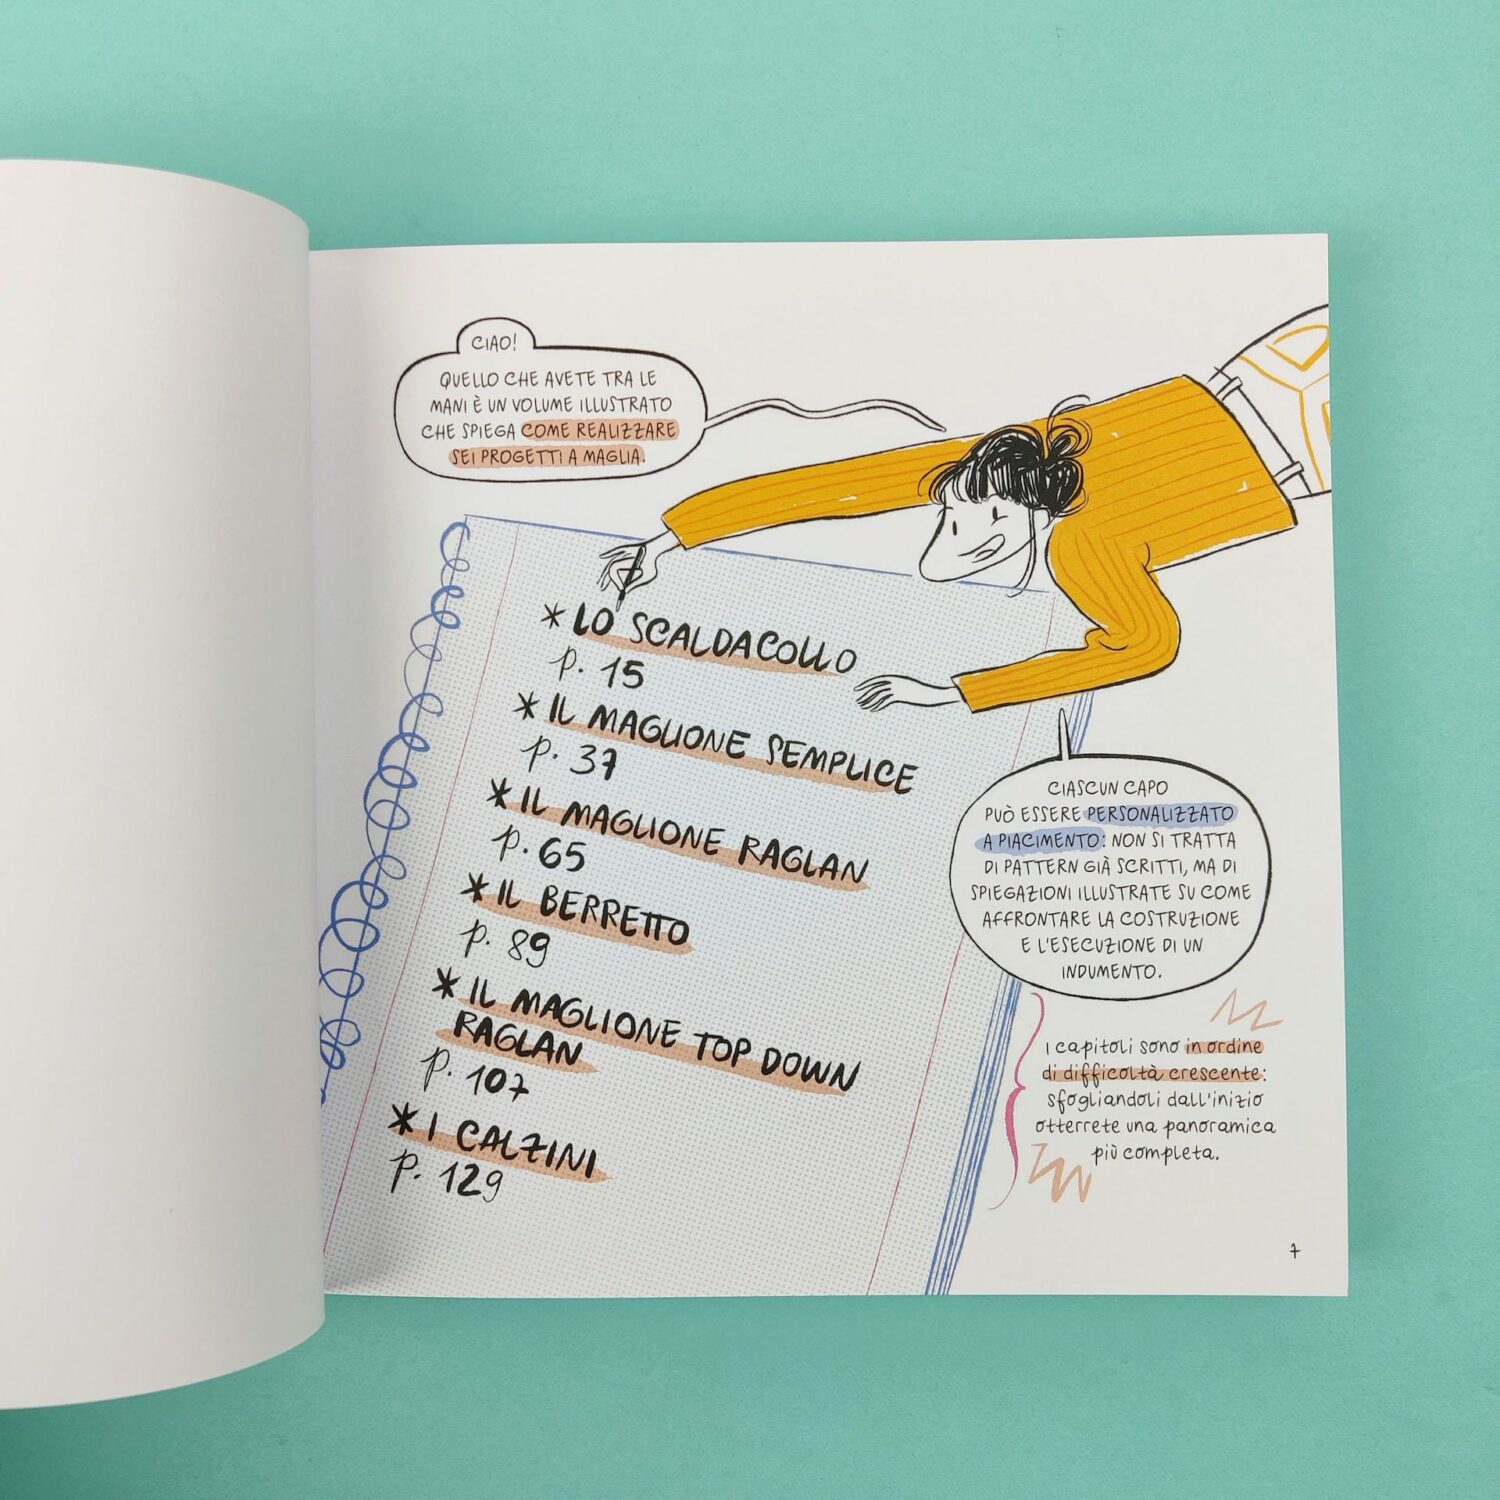 CIAO!
QUELLO CHE AVETE TRA LE
MANI È UN VOLUME ILLUSTRATO
CHE SPIEGA COME REALIZZARE
SEI PROGETTI A MAGLIA.
* LO SCALDACOLLO
p. 15
* IL MAGLIONE SEMPLICE
p. 37
* IL MAGLIONE RAGLAN
p. 65
* IL BERRETTO
p. 89
* IL MAGLIONE TOP DOWN
RAGLAN
p. 107
* I CALZINI
p. 129
CIASCUN CAPO
PUÒ ESSERE PERSONALIZZATO
A PIACIMENTO: NON SI TRATTA
DI PATTERN GIÀ SCRITTI, MA DI
SPIEGAZIONI ILLUSTRATE SU COME
AFFRONTARE LA COSTRUZIONE
E L'ESECUZIONE DI UN
INDUMENTO.
I capitoli sono in ordine
di difficoltà crescente:
sfogliandoli dall'inizio
otterrete una panoramica
più completa.
7